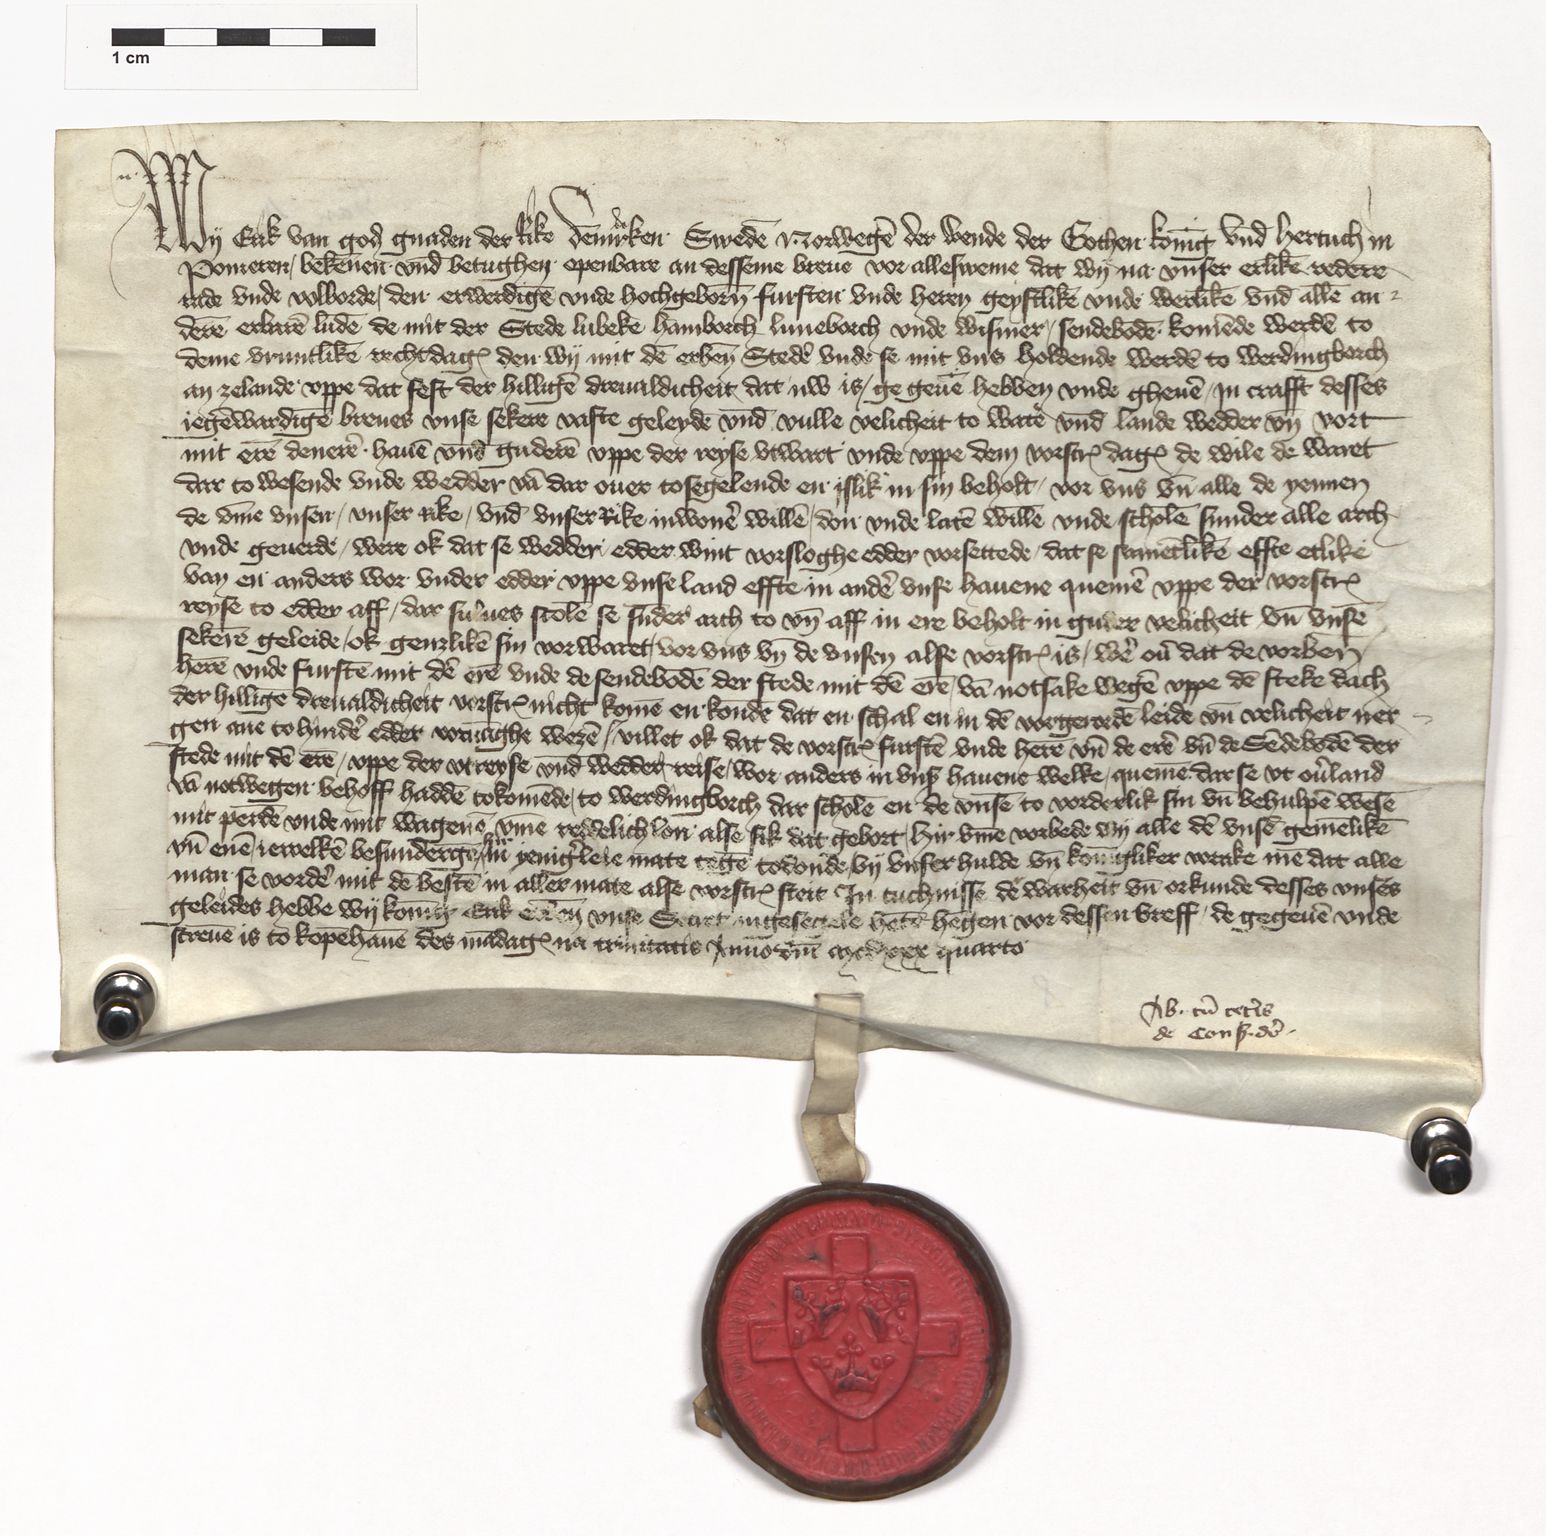 1 cm
Wij Erik van god gnaden der Rike denmrken Swedē Norwegē der wende der Gothen konīg vnd hertuch in
Pomeren / bekēnen vnd betughen openbare an desseme breue vor allesweme dat wij na vnser erlikē redere
rade vnde volborde / den erwerdigē vnde hochgebornn fursten vnde heren geystlikē vnde werlikē vnd allē an
derē erbarē ludē de mit der Stede lubeke hamborch luneborch vnde wismer / sendebodē komēde werdē to
deme vruntlikē rechtdage den wij mit dē erben Stedē vnde se mit vns holdende werdē to werdingborch
an zelande vppe dat fest der hilligē dreualdicheit dat nw is / ge geuē hebben vnde gheuē / In crafft desses
iegēwardigē breues vnse sekere vaste geleyde vnd vulle velicheit to watē vnd lande wedder vn vort
mit erē denerē hauē vnd guderē vppe der reyse vtwart vnde vppe dem vorscr dage de wile de waret
dar to wesende vnde wedder vā dar ouer tosegelende en islik in sin beholt / vor vns vn alle de yennen
de vme vnsen / vnser Rike / vnd vnser Rike inwonē willē / don vnde latē willē vnde scholē sunder alle arch
vnde geuerde / were ok dat se wedder edder wint vorsloghe edder vorsettede / dat se sametlikē effte etlike
van en anders wor vnder edder vppe vnse land effte in andē vnse hauene quemē vppe der vorscr
reyse to edder aff / dar sulues scolē se sūder arch to vn aff in ere beholt in guder velicheit vn vnse
sekerē geleide / ok genzlikē sin vorwaret / vor vns vn de vnsen alse vorscr is / wē ou dat de vorben
herē vnde furstē mit dē erē vnde de sendebodē der stede mit dē erē / vā notsake wegē vppe dē steke dach
der hilligē dreualdicheit vorscr nicht komē en kondē dat en schal en in dē vorgeredē leide vn velicheit ner
gen ane to hindē edder voruāghe wezē / villet ok dat de vorscr furstē vnde herē vn de erē vn de Sēdebodē der
stede mit dē erē / vppe der vtreyse vnd wedder reise / wor anders in vns hauene welke / quemē dar se vt ouland
vā notwegen behoff haddē tokomēde / to werdingborch dar scholē en de vnsē to vorderlik sin vn behulpē wesē
mit perdē vnde mit wagenē vmē reddelich lon alse sik dat gebort / hir vme vorbede wij alle dē vnsē gemēlikē
vn enē iewelkē besunderge / in yenigleie mate tegē todonde / by vnser hulde vn konigliker wrake me dat alle
man se vordē mit dē bestē in aller mate alse vorscr steit In tuchnisse dē warheit vn orkunde desses vnses
geleides hebbe wij konīg Erik vnse Secret ingesegele hetē hēgen vor dessen breff / de gegeuē vnde
screuē is to kopēhauē des mādage na trinitatis Anno dni mcdxxx quarto
Ab. cū ceteris
de Cons. dē